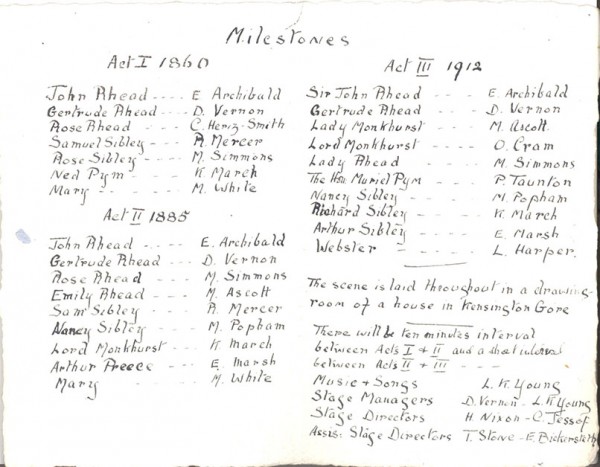 Milestones
Act I 1860
John Rhead ---- E. Archibald
Gertrude Rhead ---- D. Vernon
Rose Rhead ---- C. Heriz-Smith
Samuel Sibley ---- A. Mercer
Rose Sibley ---- M. Simmons
Ned Pym ---- K. March
Mary ---- M. White
Act II 1885
John Rhead ---- E. Archibald
Gertrude Rhead --- D. Vernon
Rose Rhead ---- M. Simmons
Emily Rhead ---- M. Ascott
Sam Sibley ---- A. Mercer
Nancy Sibley ---- M. Popham
Lord Monkhurst --- K. March
Arthur Preece --- E. Marsh
Mary ---- M. White
Act III 1912
Sir John Rhead ---- E. Archibald
Gertrude Rhead ---- D. Vernon
Lady Monkhurst ---- M. Ascott.
Lord Monkhurst ---- O. Cram
Lady Rhead ---- M. Simmons
The Hon. Muriel Pym --- P. Taunton
Nancy Sibley ---- M. Popham
Richard Sibley ---- K. March
Arthur Sibley ---- E. Marsh
Webster ---- L. Harper.
The scene is laid throughout in a drawing-
room of a house in Kensington Gore
There will be ten minutes interval
between Acts I + II and a short interval
between Acts II + III ----
Music + Songs L. K. Young
Stage Managers D. Vernon - L. K Young
Stage Directors H. Nixon - C. Jessop
Assis: Stage Directors T. Stowe - E. Bickersteth